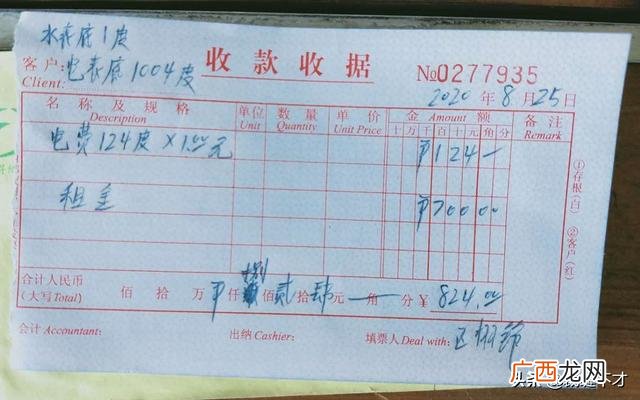 水表底1度
收款收据
№0277935
客户: 电表底1004度
Client:
2020年8月25日
名称及规格 单位 数量 单价 金 Amount 额 备注
Description Unit Quantity Unit Price 十万千百十元角分 Remark
电费124度×1.00元 ¥124—
租金 ¥70000
①存根(白) ②客户(红)
合计人民币
(大写Total) 佰 拾 万 仟 捌 佰 贰 拾 肆 元 — 角 分 ¥ 824.00
会计 Accountant: 出纳 Cashier: 填票人 Deal with:
广西龙网